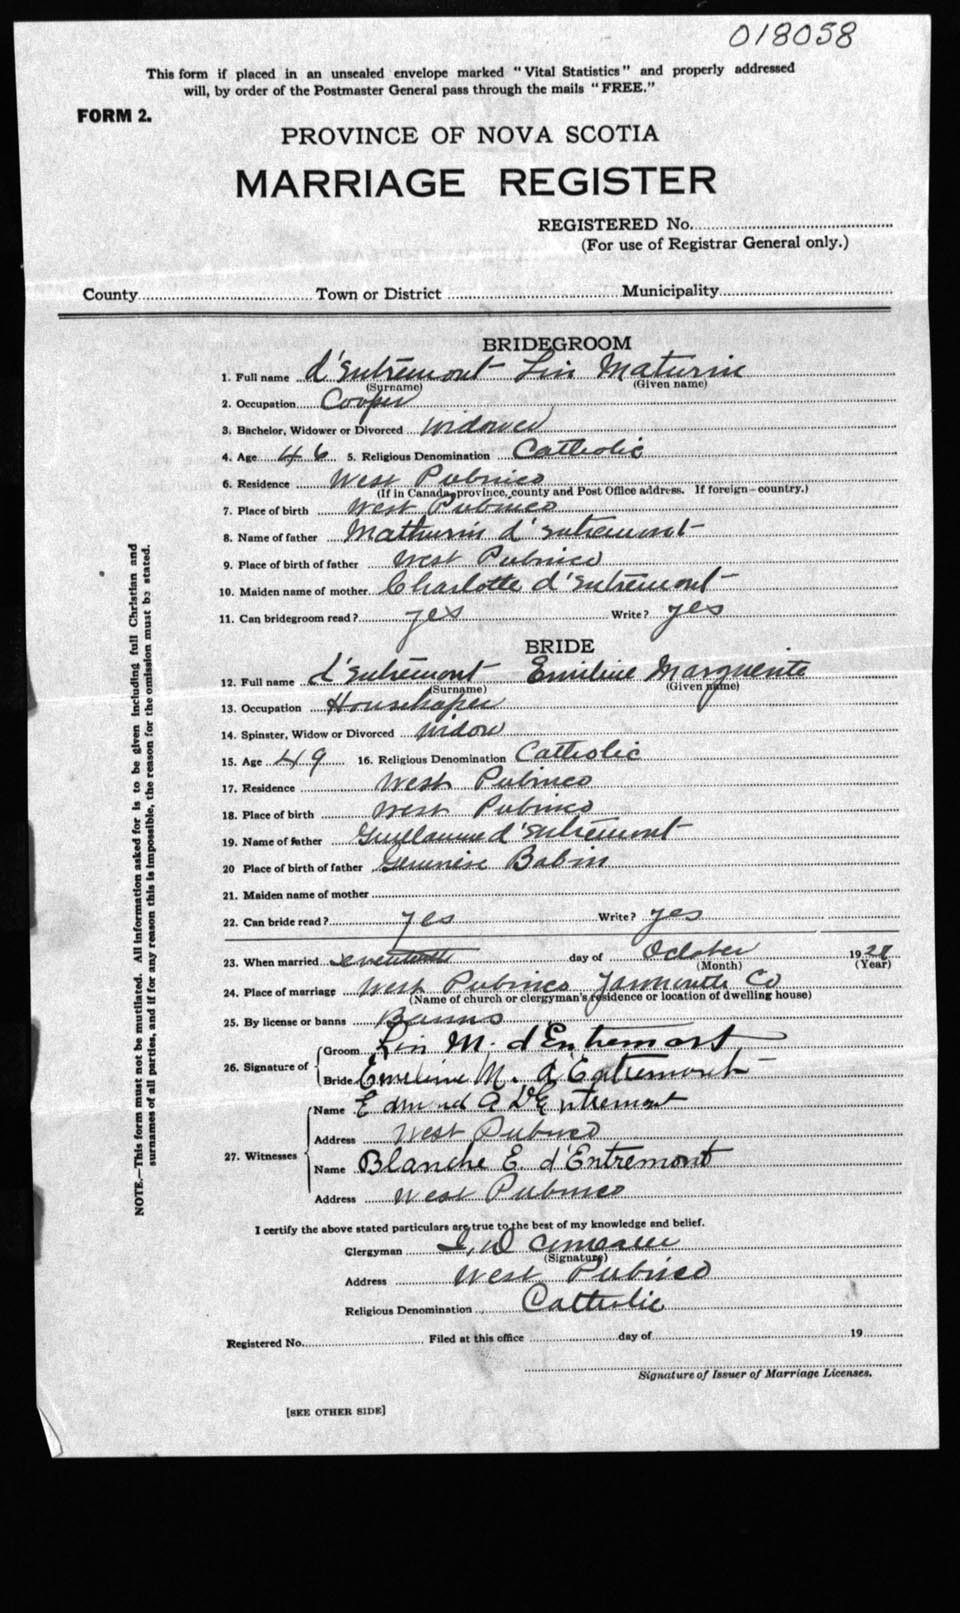 018058
This form if placed in an unsealed envelope marked "Vital Statistics" and properly addressed
will, by order of the Postmaster General pass through the mails "FREE."
FORM 2.
PROVINCE OF NOVA SCOTIA
MARRIAGE REGISTER
REGISTERED No.
(For use of Registrar General only.)
County Town or District Municipality
BRIDEGROOM
1. Full name d'Entremont Lin Maturin
(Surname) (Given name)
2. Occupation Cooper
3. Bachelor, Widower or Divorced Widower
4. Age 46 5. Religious Denomination Catholic
6. Residence West Pubnico
(If in Canada, province, county and Post Office address. If foreign—country.)
7. Place of birth West Pubnico
8. Name of father Mathurin d'Entremont
9. Place of birth of father West Pubnico
10. Maiden name of mother Charlotte d'Entremont
11. Can bridegroom read? yes Write? yes
BRIDE
12. Full name d'Entremont Emiline Marguerite
(Surname) (Given name)
13. Occupation Housekeper
14. Spinster, Widow or Divorced Widow
15. Age 49 16. Religious Denomination Catholic
17. Residence West Pubnico
18. Place of birth West Pubnico
19. Name of father Guillaume d'Entremont
20 Place of birth of father Babin
21. Maiden name of mother
22. Can bride read? yes Write? yes
23. When married day of October 1928
(Month) (Year)
24. Place of marriage West Pubnico Yarmouth Co
(Name of church or clergyman's residence or location of dwelling house)
25. By license or banns Banns
26. Signature of Groom Lin M. d'Entremont
Bride Emeline M. d'Entremont
27. Witnesses Name Edmund A D'Entremont
Address West Pubnico
Name Blanche E. d'Entremont
Address West Pubnico
I certify the above stated particulars are true to the best of my knowledge and belief.
Clergyman
(Signature)
Address West Pubnico
Religious Denomination Catholic
Registered No. Filed at this office day of 19
Signature of Issuer of Marriage Licenses.
[SEE OTHER SIDE]
NOTE.—This form must not be mutilated. All information asked for is to be given including full Christian and
surnames of all parties, and if for any reason this is impossible, the reason for the omission must be stated.